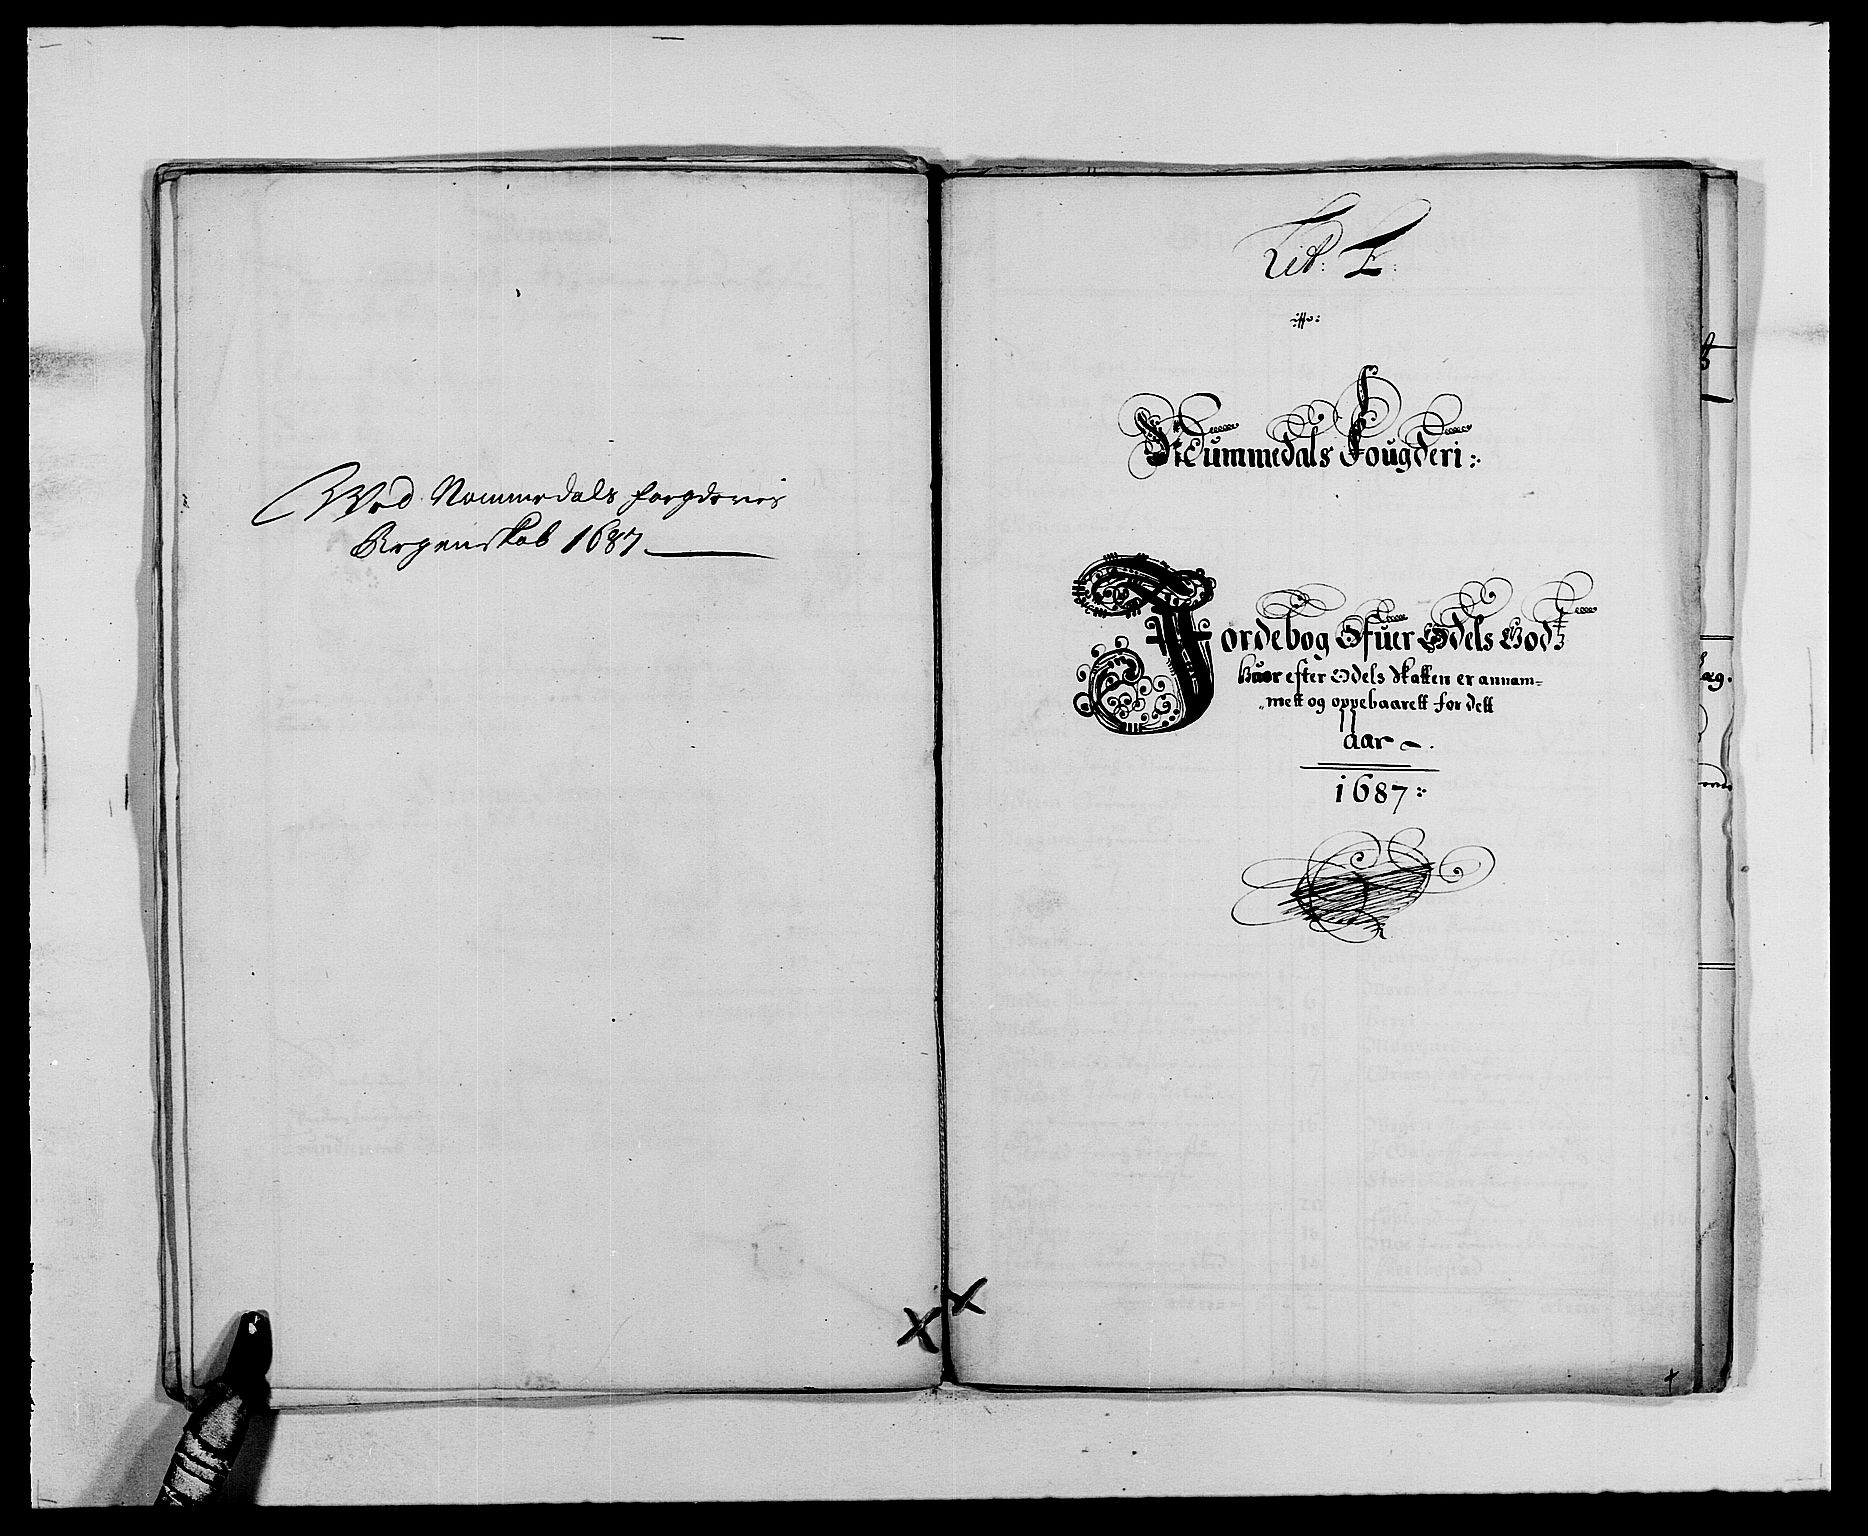 Wed Nommedals fougderis
Regenskab 1687
Lit: E:
Nummedals Fougderi:
Jordebog Ofuer Odels Godtz
Huor efter Odels skatten er annam=
mett og oppebaarett for dett
aar
1687: